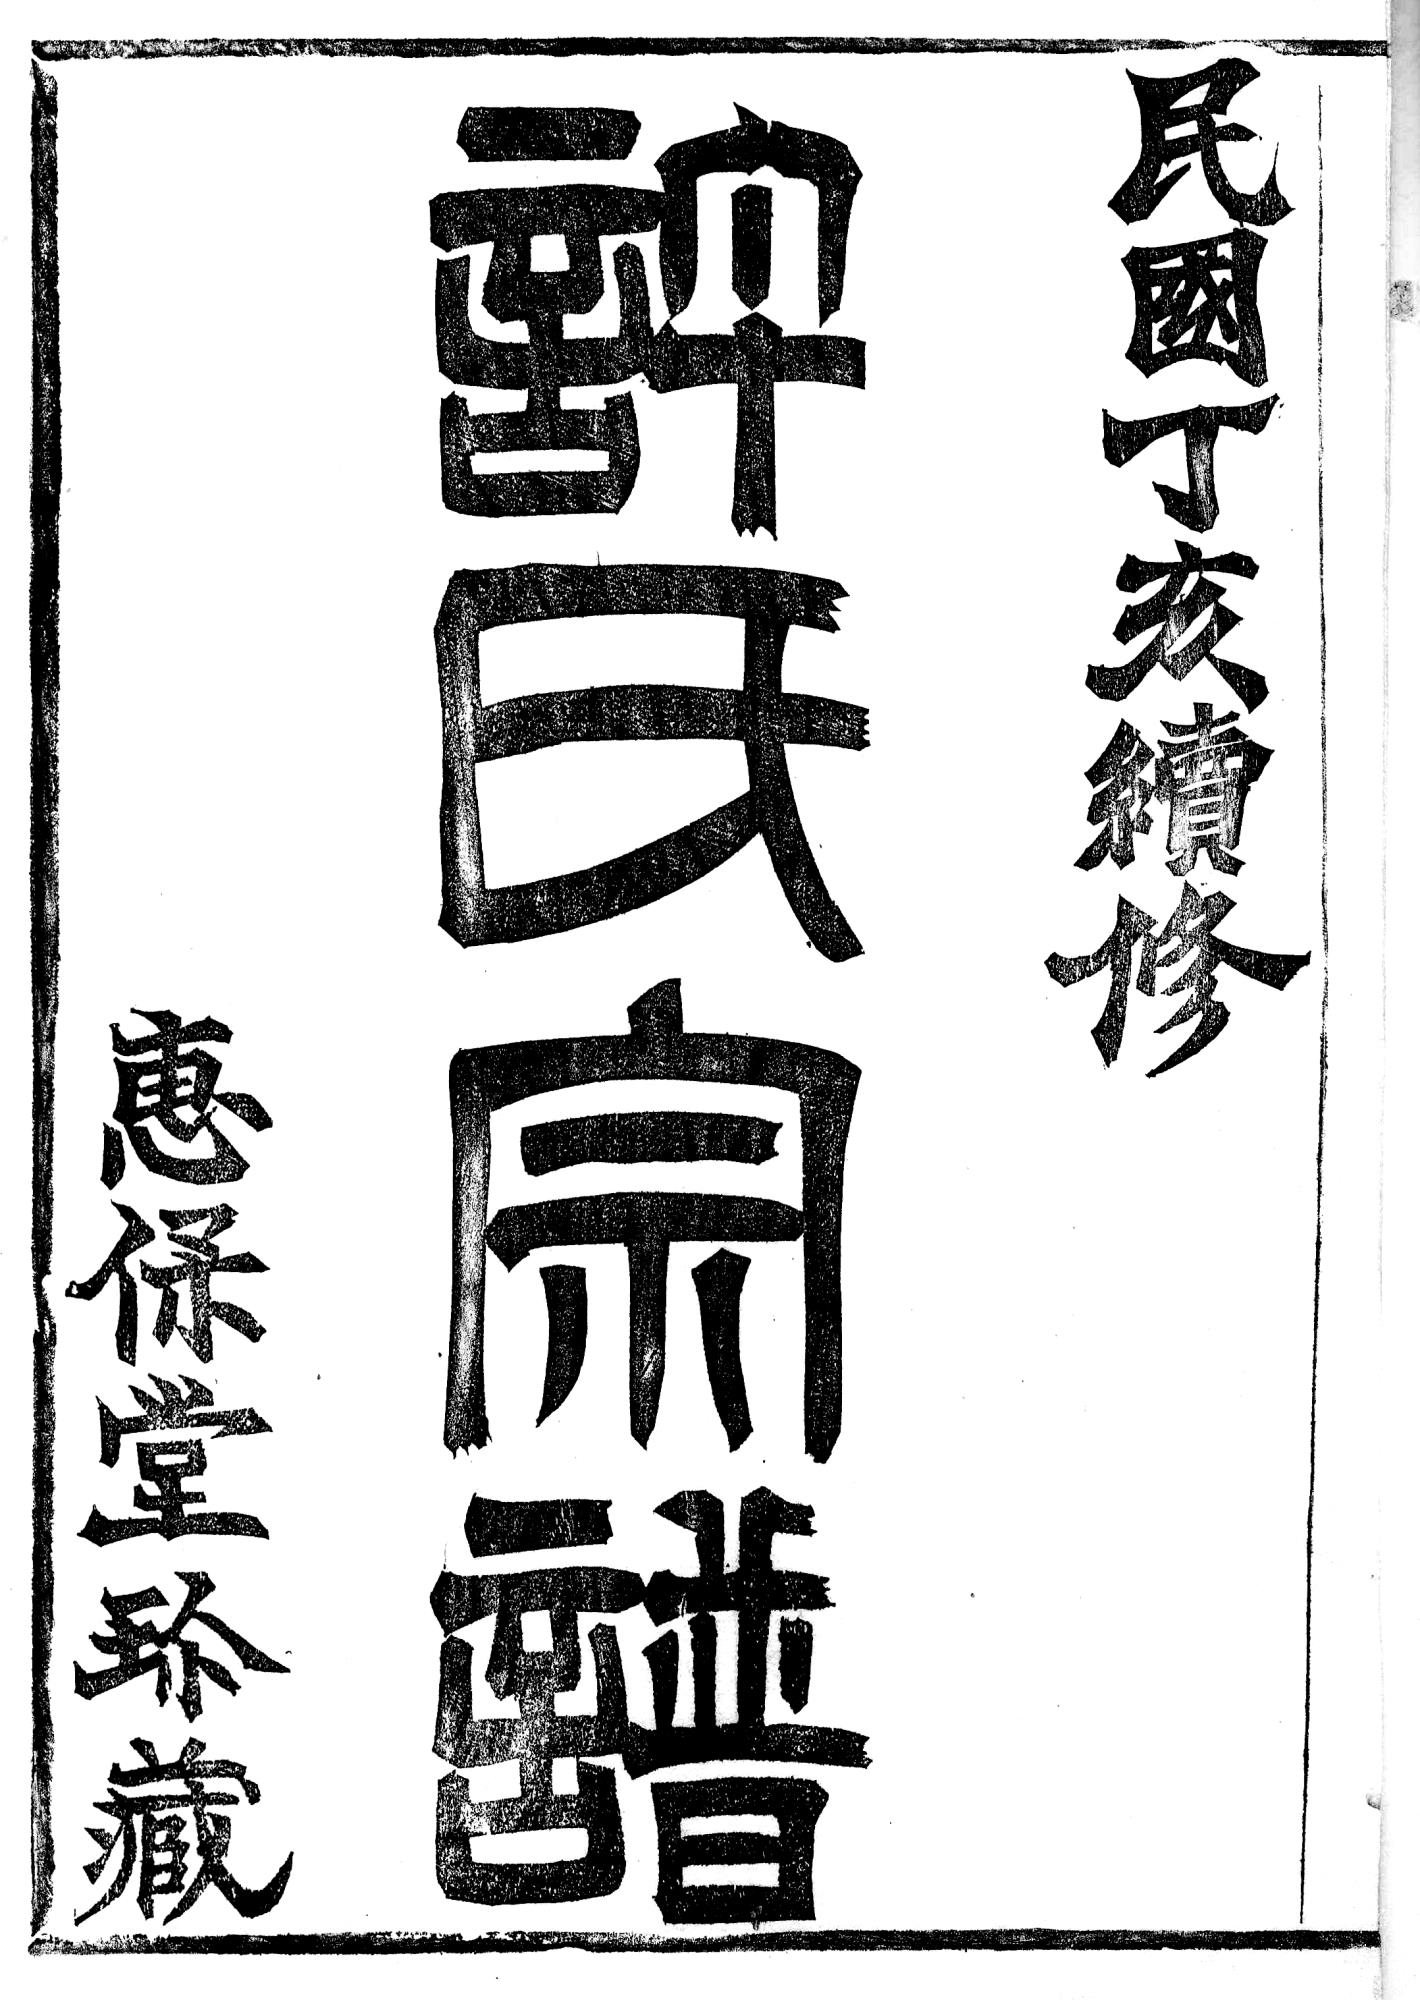 民國丁亥續修
許氏宗譜
惠保堂珍藏